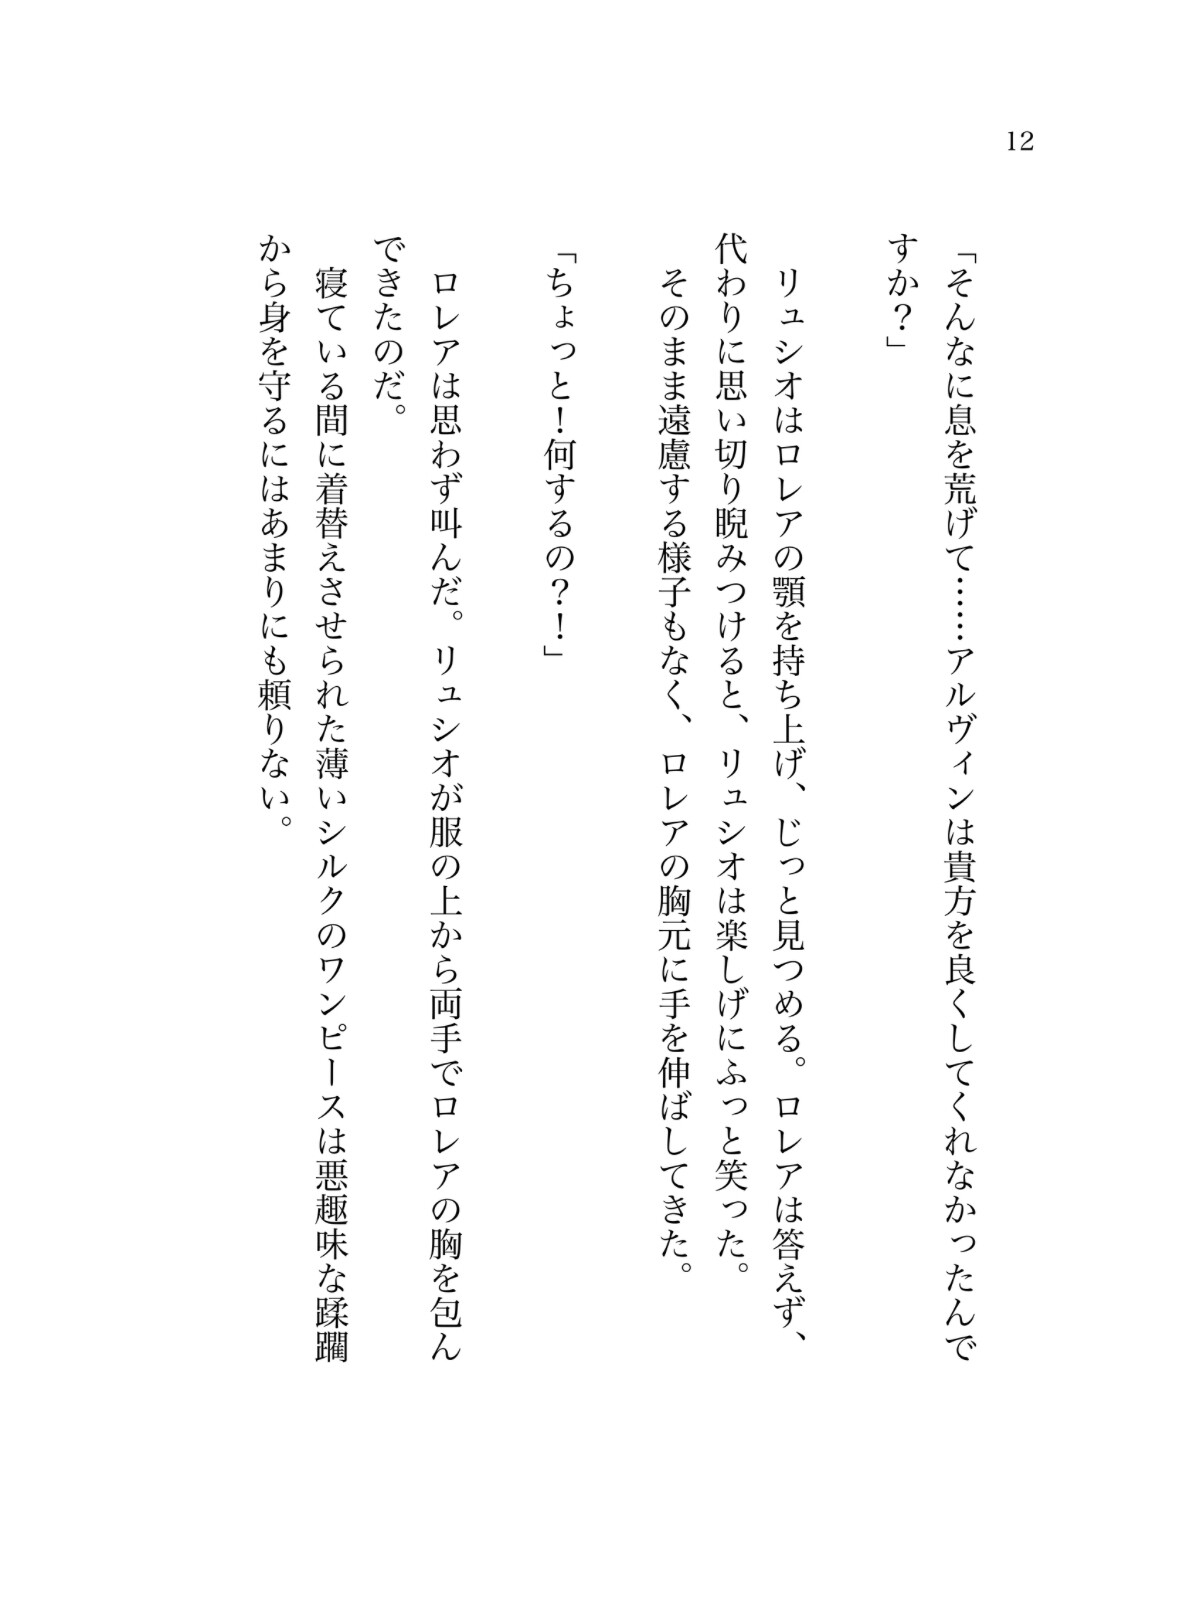 12
「そんなに息を荒げて……アルヴィンは貴方を良くしてくれなかったんで
すか？」
リュシオはロレアの顎を持ち上げ、じっと見つめる。ロレアは答えず、
代わりに思い切り睨みつけると、リュシオは楽しげにふっと笑った。
そのまま遠慮する様子もなく、ロレアの胸元に手を伸ばしてきた。
「ちょっと！何するの？！」
ロレアは思わず叫んだ。リュシオが服の上から両手でロレアの胸を包ん
できたのだ。
寝ている間に着替えさせられた薄いシルクのワンピースは悪趣味な蹂躙
から身を守るにはあまりにも頼りない。